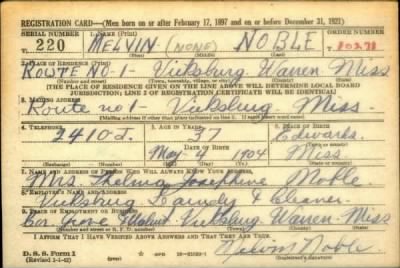 REGISTRATION CARD—(Men born on or after February 17, 1897 and on or before December 31, 1921)
SERIAL NUMBER 1. NAME (Print) ORDER NUMBER
220 MELVIN (NONE) NOBLE 10278
(First) (Middle) (Last)
2. PLACE OF RESIDENCE (Print)
ROUTE NO-1- Vicksburg Warren Miss
(Number and street) (Town, township, village, or city) (County) (State)
[THE PLACE OF RESIDENCE GIVEN ON THE LINE ABOVE WILL DETERMINE LOCAL BOARD
JURISDICTION; LINE 2 OF REGISTRATION CERTIFICATE WILL BE IDENTICAL]
3. MAILING ADDRESS
Route no 1- Vicksburg Miss.
[Mailing address if other than place indicated on line 2. If same insert word same]
4. TELEPHONE 5. AGE IN YEARS 6. PLACE OF BIRTH
2410-J. 37 Edwards
DATE OF BIRTH (Town or county)
May 4 1904 Miss
(Exchange) (Number) (Mo.) (Day) (Yr.) (State or country)
7. NAME AND ADDRESS OF PERSON WHO WILL ALWAYS KNOW YOUR ADDRESS
Mrs. Thelma Josephine Noble
8. EMPLOYER'S NAME AND ADDRESS
Vicksburg Laundry & Cleaner
9. PLACE OF EMPLOYMENT OR BUSINESS
Cor. Grove Walnut Vicksburg Warren-Miss
(Number and street or R. F. D. number) (Town) (County) (State)
I AFFIRM THAT I HAVE VERIFIED ABOVE ANSWERS AND THAT THEY ARE TRUE.
D. S. S. Form 1
(Revised 1-1-42) (over)
Melvin Noble